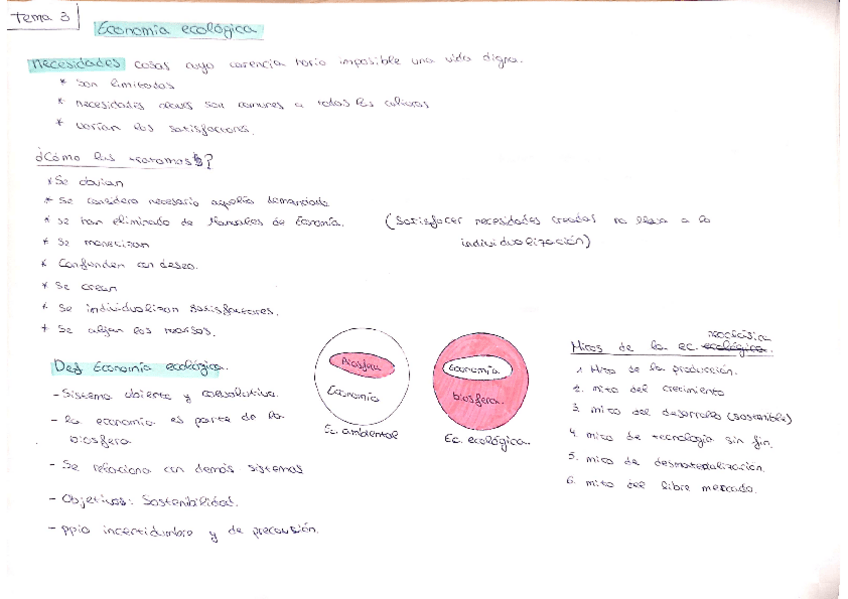 Tema 3
Economía ecológica
Necesidades cosas cuya carencia haría imposible una vida digna.
* Son limitadas
* necesidades son comunes a todas las culturas
* varían los
¿Cómo las tratamos?
* Se obvian
* Se considera necesario aquello demandado
* Se han eliminado de Manuales de Economía. (Satisfacer necesidades creadas no lleva a la
individualización)
* Se
* Confunden con deseo.
* Se crean
* Se individualizan satisfactores.
* Se alejan los recursos.
Def Economía ecológica.
- Sistema abierto y coevolutivo.
- la economía es parte de la
biosfera
- Se relaciona con demás sistemas
- Objetivos: Sostenibilidad.
- ppio incertidumbre y de precaución.
Biosfera
Economía
Ec. ambiental
Economía
biosfera.
Ec. ecológica.
Mitos de la ec. ecológica.
1. Mito de la producción.
2. mito del crecimiento
3. mito del desarrollo (sostenible)
4. mito de tecnología sin fin.
5. mito de desmaterialización.
6. mito del libre mercado.